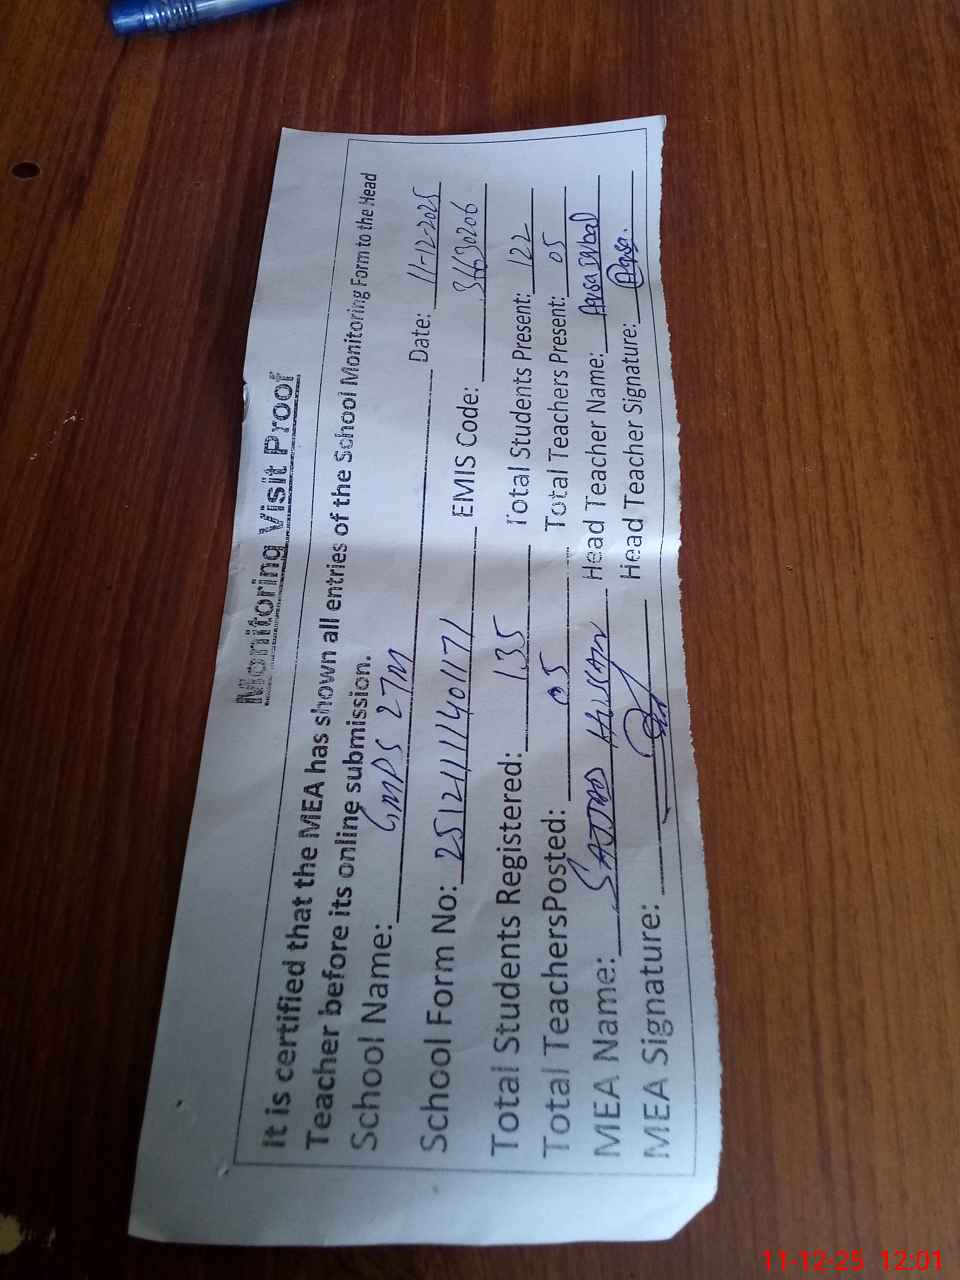 Monitoring Visit Proof
It is certified that the MEA has shown all entries of the School Monitoring Form to the Head
Teacher before its online submission.
School Name: GMPS 27M Date: 11-12-2025
School Form No: 25121111401171 EMIS Code: 36630206
Total Students Registered: 135 Total Students Present: 122
Total TeachersPosted: 05 Total Teachers Present: 05
MEA Name: SAJJAD HUSSAIN Head Teacher Name: Aqsa Iqbal
MEA Signature: Head Teacher Signature: Aqsa.
11-12-25 12:01